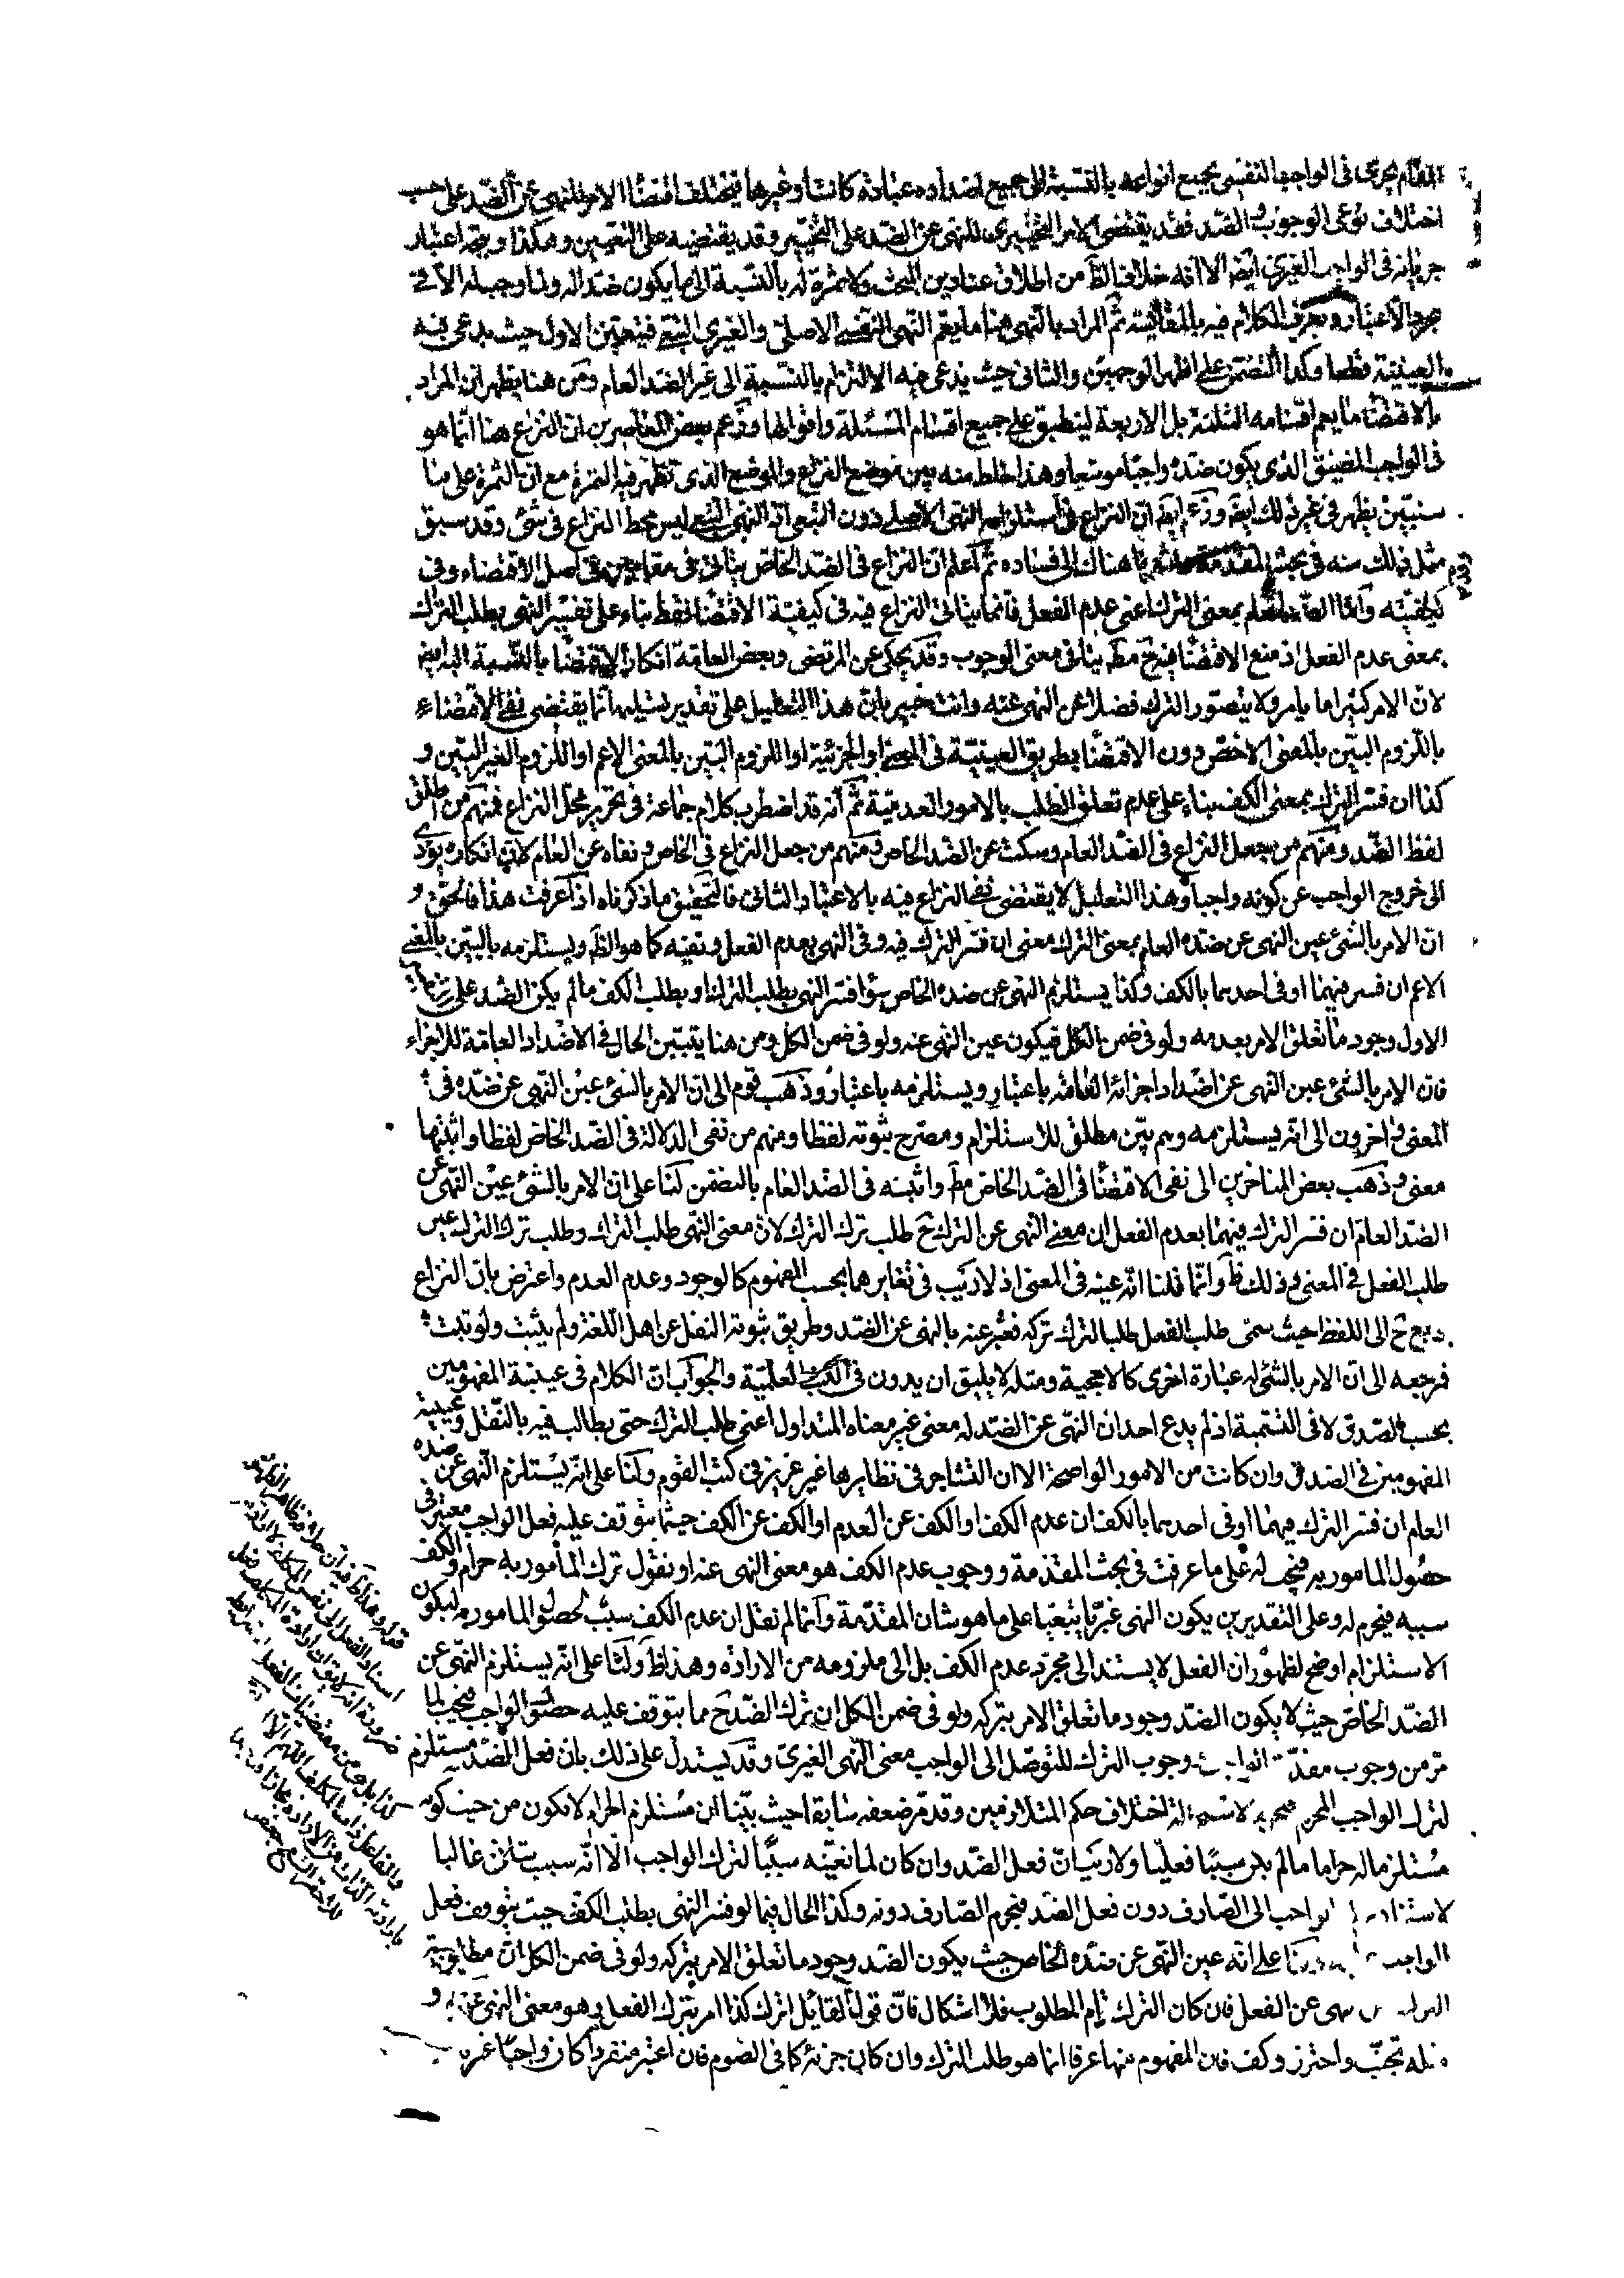 المقام يجرى فى الواجب النفسى بجميع انواعه بالنسبة الى جميع اضداده عبادة كانت او غيرها فيختلف اقتضاء الامر للنهى عن الضد على حسب
اختلاف نوعى الوجوب و الضد فقد يقتضى الامر التخييرى للنهى عن الضد على التخيير وقد يقتضيه على التعيين وهكذا ويتجه اعتبار
جريانه فى الواجب الغيرى ايضا الا انه خلاف الظ من اطلاق عناوين البحث ولا ثمرة له بالنسبة الى ما يكون ضدا له ولما وجب له الا فى
مجرد الاعتبار ويعرف الكلام فيه بالمقايسة ثم المراد بالنهى هنا ما يعم النهى النفسى الاصلى والغيرى التبعى فيتعين الاول حيث يدعى فيه
العينية قطعا وكذا التضمن على اظهر الوجهين والثانى حيث يدعى فيه الالتزام بالنسبة الى غير الضد العام ومن هنا يظهر ان المراد
بالاقتضاء ما يعم اقسامه الثلثة بل الاربعة لينطبق على جميع اقسام المسئلة واقوالها وزعم بعض المعاصرين ان النزاع هنا انما هو
فى الواجب المضيق الذى يكون ضده واجبا موسعا وهذا خلط منه بين موضع النزاع والموضع الذى تظهر فيه الثمرة مع ان الثمرة على ما
سنبين يظهر فى غير ذلك ايضا وزعم ايضا ان النزاع فى استلزامه النهى الاصلى دون التبعى اذ النهى التبعى ليس محط النزاع فى شئ وقد سبق
مثل ذلك منه فى بحث المقدمة هناك الى فساده ثم اعلم ان النزاع فى الضد الخاص يتاتى فى مقامين فى اصل الاقتضاء وفى
كيفيته واما الضد العام بمعنى الترك اعنى عدم الفعل فانما يتاتى النزاع فيه فى كيفية الاقتضاء فقط بناء على تفسير النهى بطلب الترك
بمعنى عدم الفعل اذ منع الاقتضاء فيه ح مط ينافى معنى الوجوب وقد يحكى عن المرتضى وبعض العامة انكار الاقتضاء بالنسبة اليه ايضا
لان الامر كثيرا ما يامر ولا يتصور الترك فضلا عن النهى عنه وانت خبير بان هذا التعليل على تقدير تسليمه انما يقتضى نفى الاقتضاء
باللزوم البين بالمعنى الاخص دون الاقتضاء بطريق العينية فى المعنى او الجزئية او اللزوم البين بالمعنى الاعم او اللزوم الغير البين و
كذا ان فسر الترك بمعنى الكف بناء على عدم تعلق الطلب بالامور العدمية ثم انه قد اضطرب كلام جماعة فى تحرير محل النزاع فمنهم من اطلق
لفظ الضد ومنهم من جعل النزاع فى الضد العام وسكت عن الضد الخاص ومنهم من جعل النزاع فى الخاص ونفاه عن العام لان انكاره يؤدى
الى خروج الواجب عن كونه واجبا وهذا التعليل لا يقتضى نفى النزاع فيه بالاعتبار الثانى فالتحقيق ما ذكرناه اذا عرفت هذا فالحق
ان الامر بالشئ عين النهى عن ضده العام بمعنى الترك معنى ان فسر الترك فيه وفى النهى بعدم الفعل ونفيه كما هو الظ ويستلزمه بالبين بالمعنى
الاعم ان فسر فيهما او فى احدهما بالكف وكذا يستلزم النهى عن ضده الخاص سواء فسر النهى بطلب الترك او بطلب الكف ما لم يكن الضد على
الاول وجود ما تعلق الامر بعدمه ولو فى ضمن الكل فيكون عين النهى عنه ولو فى ضمن الكل ومن هنا يتبين الحال فى الاضداد العامة للاجزاء
فان الامر بالشئ عين النهى عن اضداد اجزائه العامة باعتبار ويستلزمه باعتبار وذهب قوم الى ان الامر بالشئ عين النهى عن ضده فى
المعنى واخرون الى انه يستلزمه وهم بين مطلق للاستلزام ومصرح بثبوته لفظا ومنهم من نفى الدلالة فى الضد الخاص لفظا واثبتها
معنى وذهب بعض المتاخرين الى نفى الاقتضاء فى الضد الخاص مط واثبته فى الضد العام بالتضمن لنا على ان الامر بالشئ عين النهى عن
الضد العام ان فسر الترك فيهما بعدم الفعل ان معنى النهى عن الترك ح طلب ترك الترك لان معنى النهى طلب الترك وطلب ترك الترك عين
طلب الفعل فى المعنى وذلك ظ وانما قلنا انه عينه فى المعنى اذ لا ريب فى تغايرهما بحسب المفهوم كالوجود وعدم العدم واعترض بان النزاع
ح الى اللفظ حيث سمى طلب الفعل طلبا لترك تركه فعبر عنه بالنهى عن الضد وطريق ثبوته النقل عن اهل اللغة ولم يثبت ولو ثبت
فرجعه الى ان الامر بالشئ له عبارة اخرى كالاحجية ومثله لا يليق ان يدون فى الكتب العلمية والجواب ان الكلام فى عينية المفهومين
بحسب الصدق لا فى التسمية اذ لم يدع احد ان النهى عن الضد له معنى غير معناه المتداول اعنى طلب الترك حتى يطالب فيه بالنقل وعينية
المفهومين فى الصدق وان كانت من الامور الواضحة الا ان التشاجر فى نظايرها غير عزيز فى كتب القوم ولنا على انه يستلزم النهى عن ضده
العام ان فسر الترك فيهما او فى احدهما بالكف ان عدم الكف او الكف عن العدم او الكف عن الكف حيثما يتوقف عليه فعل الواجب معتبر فى
حصول المامور به فيجب له على ما عرفت فى بحث المقدمة ووجوب عدم الكف هو معنى النهى عنه او نقول ترك المأمور به حرام والكف
سببه فيحرم له وعلى التقديرين يكون النهى غيريا تبعيا على ما هو شان المقدمة وانما لم نقل ان عدم الكف سبب لحصول المامور به ليكون
الاستلزام اوضح لظهور ان الفعل لا يستند الى مجرد عدم الكف بل الى ملزومه من الارادة وهذا ظ ولنا على انه يستلزم النهى عن
الضد الخاص حيث لا يكون الضد وجود ما تعلق الامر بتركه ولو فى ضمن الكل ان ترك الضد ح مما يتوقف عليه حصول الواجب فيجب لما
مر من وجوب وجوب الترك للتوصل الى الواجب معنى النهى الغيرى وقد يستدل على ذلك بان فعل الضد مستلزم
لترك الواجب المحرم اختلاف حكم المتلازمين وقد مر ضعفه سابقا حيث بينا ان مستلزم الحرام لا يكون من حيث كونه
مستلزما له حراما ما لم يكن سببا فعليا ولا ريب ان فعل الضد وان كان لما نعيته سببا لترك الواجب الا انه سبب شانى غالبا
الواجب الى الصارف دون فعل الضد فيحرم الصارف دونه وكذا الحال فيما لو فسر النهى بطلب الكف حيث يتوقف فعل
الواجب على انه عين النهى عن ضده الخاص حيث يكون الضد وجود ما تعلق الامر بتركه ولو فى ضمن الكل ان مطلوبية
عن الفعل فان كان الترك تمام المطلوب فلا اشكال فان قول القايل اترك كذا امر بترك الفعل وهو معنى النهى عنه و
تجنب واحترز وكف فان المفهوم منها عرفا انما هو طلب الترك وان كان جزئه كما فى الصوم فان اعتبر منفردا كان واجبا